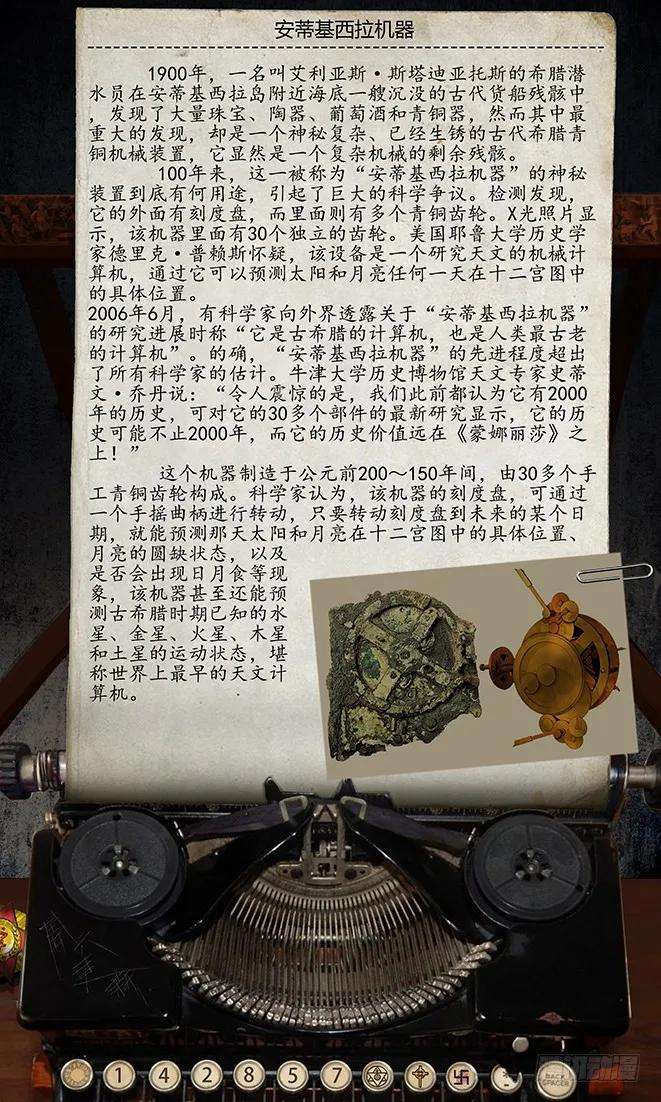 安蒂基西拉机器
1900年，一名叫艾利亚斯·斯塔迪亚托斯的希腊潜
水员在安蒂基西拉岛附近海底一艘沉没的古代货船残骸中
，发现了大量珠宝、陶器、葡萄酒和青铜器，然而其中最
重大的发现，却是一个神秘复杂、已经生锈的古代希腊青
铜机械装置，它显然是一个复杂机械的剩余残骸。
100年来，这一被称为“安蒂基西拉机器”的神秘
装置到底有何用途，引起了巨大的科学争议。检测发现，
它的外面有刻度盘，而里面则有多个青铜齿轮。X光照片显
示，该机器里面有30个独立的齿轮。美国耶鲁大学历史学
家德里克·普赖斯怀疑，该设备是一个研究天文的机械计
算机，通过它可以预测太阳和月亮任何一天在十二宫图中
的具体位置。
2006年6月，有科学家向外界透露关于“安蒂基西拉机器”
的研究进展时称“它是古希腊的计算机，也是人类最古老
的计算机”。的确，“安蒂基西拉机器”的先进程度超出
了所有科学家的估计。牛津大学历史博物馆天文专家史蒂
文·乔丹说：“令人震惊的是，我们此前都认为它有2000
年的历史，可对它的30多个部件的最新研究显示，它的历
史可能不止2000年，而它的历史价值远在《蒙娜丽莎》之
上！”
这个机器制造于公元前200～150年间，由30多个手
工青铜齿轮构成。科学家认为，该机器的刻度盘，可通过
一个手摇曲柄进行转动，只要转动刻度盘到未来的某个日
期，就能预测那天太阳和月亮在十二宫图中的具体位置、
月亮的圆缺状态，以及
是否会出现日月食等现
象，该机器甚至还能预
测古希腊时期已知的水
星、金星、火星、木星
和土星的运动状态，堪
称世界上最早的天文计
算机。
1 4 2 8 5 7
BACK
SPACER